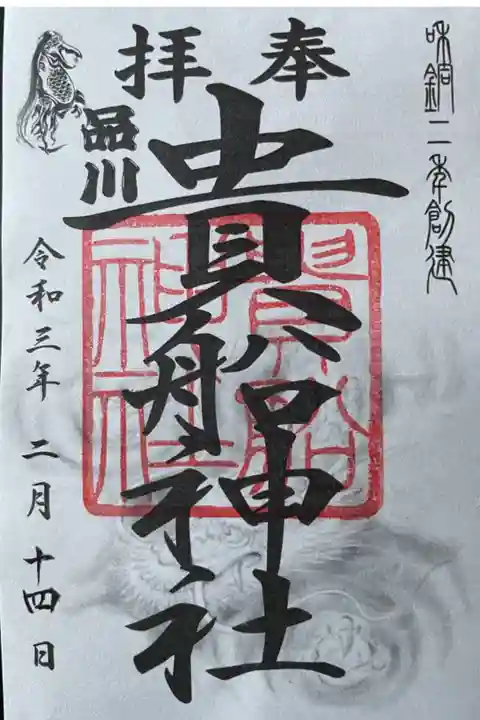 味銅二年創建
奉拝
貴船神社
品川
貴船
神社
令和三年 二月 十四日